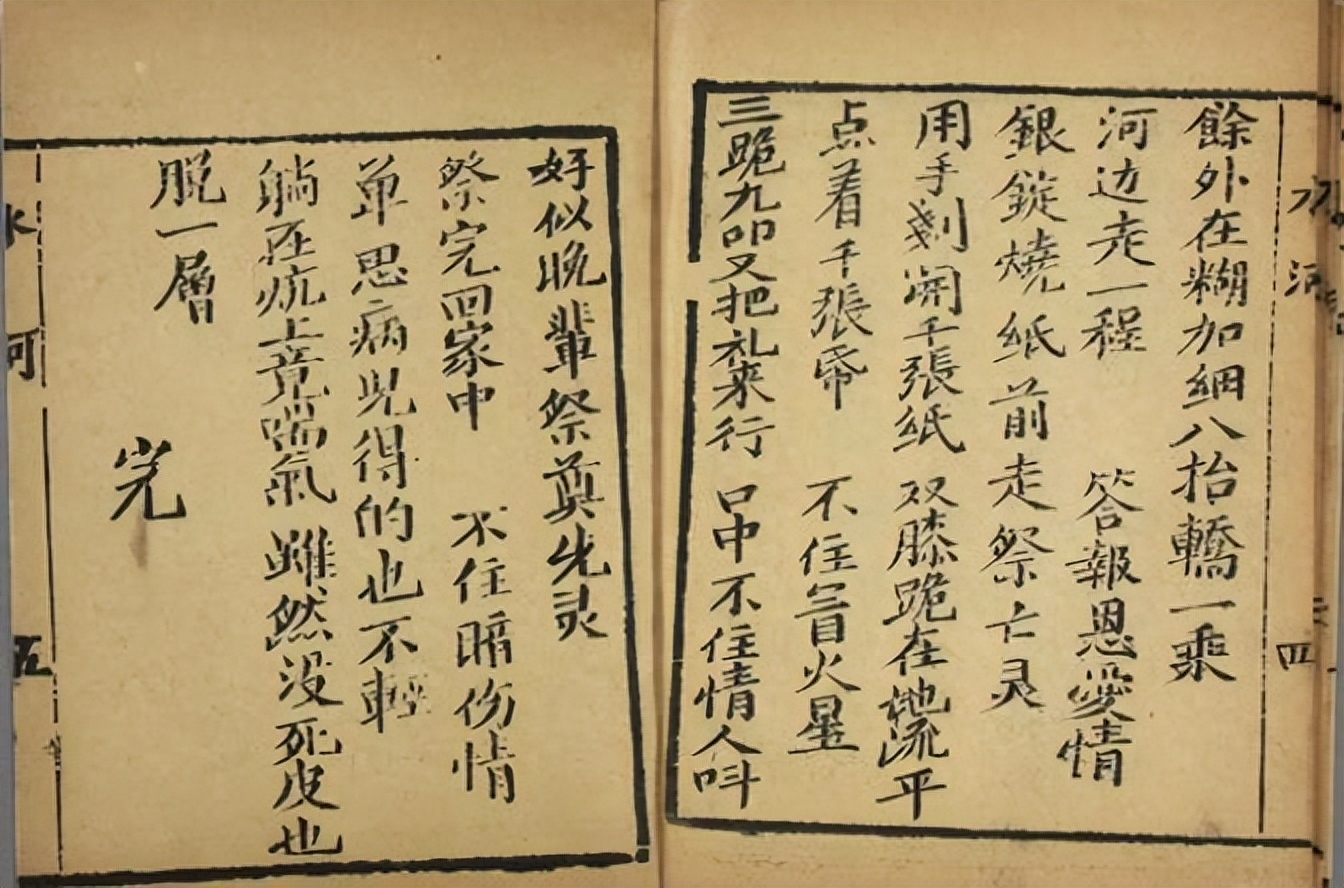 餘外在糊加細八抬轎一乘
河边走一程 答報恩愛情
銀錠燒纸前走祭亡灵
用手剗開千張纸 双膝跪在地流平
点着千張帋 不住冒火星
三跪九叩又把礼来行 口中不住情人呌
四
好似晚輩祭奠先灵
祭完回家中 不住暗伤情
单思病兒得的也不輕
躺在炕上竟喘氣 雖然没死皮也
脱一層
完
水 河
五